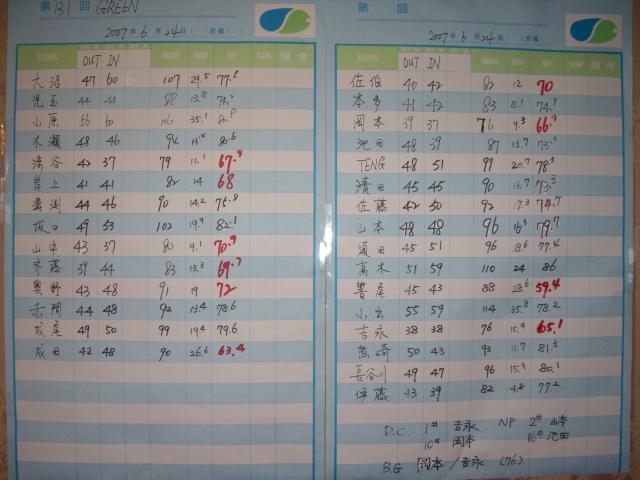 第 131 回 GREEN
2007 年 6 月 24 日 ( ) (天候: )
PLAYER OUT IN GROSS HDCP NET RANK 備考
大沼 47 60 107 29.5 77.5
児玉 44 44 88 13.8 74.2
小原 56 60 116 35.1 80.9
木瀬 48 46 94 13.4 80.6
深谷 42 37 79 11.1 67.9
岸上 41 41 82 14 68
44 46 90 14.2 75.8
坂口 49 53 102 19.9 82.1
山中 43 37 80 9.1 70.9
斉藤 39 44 83 13.3 69.7
奥野 43 48 91 19 72
赤間 44 48 92 13.4 78.6
成尾 49 50 99 19.4 79.6
成田 42 48 90 26.6 63.4
第 回
2007 年 6 月 24 日 ( ) (天候: )
PLAYER OUT IN GROSS HDCP NET RANK 備考
佐伯 40 42 82 12 70
本多 41 42 83 8.1 74.9
岡本 39 37 76 9.3 66.7
池田 48 39 87 13.7 73.3
TENG 48 51 99 20.7 78.3
濱田 45 45 90 16.7 73.3
佐藤 42 50 92 17.3 74.7
山本 48 48 96 16.3 79.7
須田 45 51 96 18.6 77.4
高木 51 59 110 24 86
鷲尾 45 43 88 28.6 59.4
小出 55 59 114 35.8 78.2
吉永 38 38 76 10.9 65.1
熊崎 50 43 93 11.7 81.3
長谷川 49 47 96 15.9 80.1
伊藤 43 39 82 4.8 77.2
D.C. 1# 吉永 NP. 2# 山本
10# 岡本 16# 池田
B.G 岡本/吉永 (76)